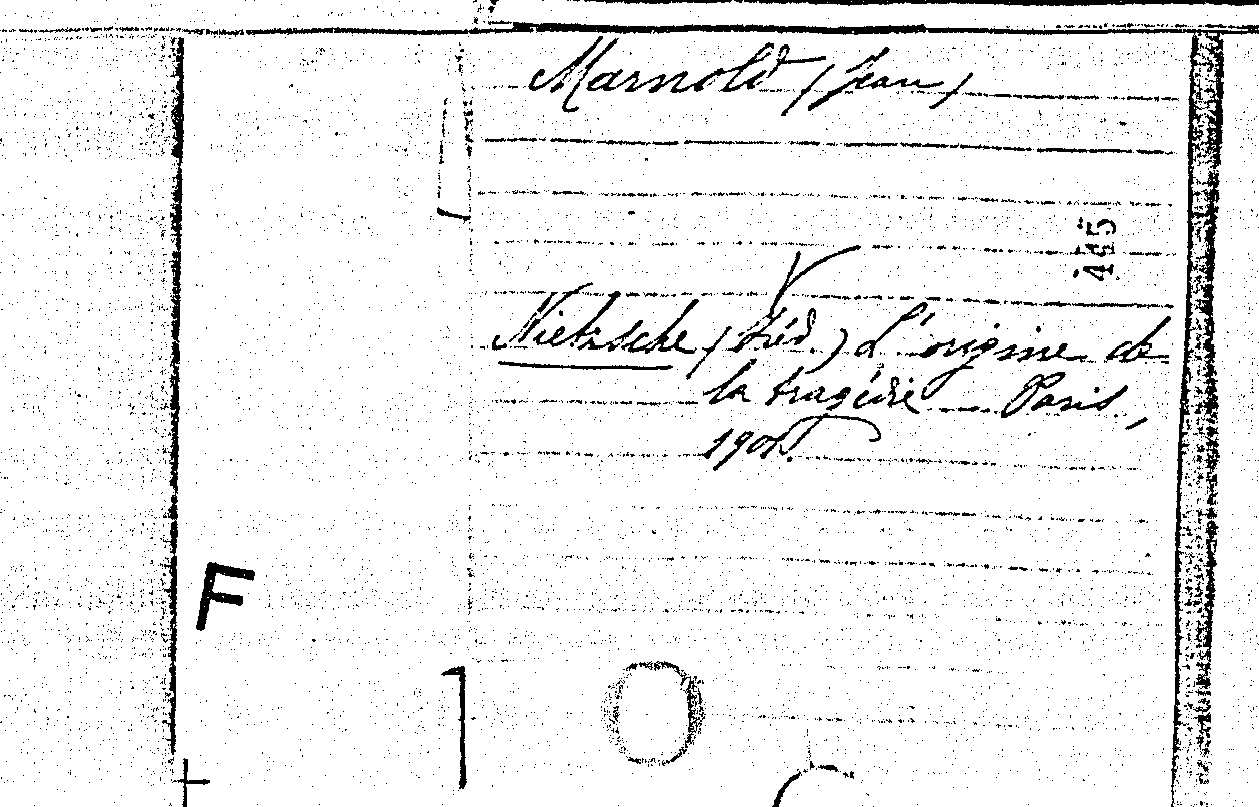 Marnold (Jean)
115
Nietzsche (Fréd.) L'origine de
la tragédie Paris,
1901.
F